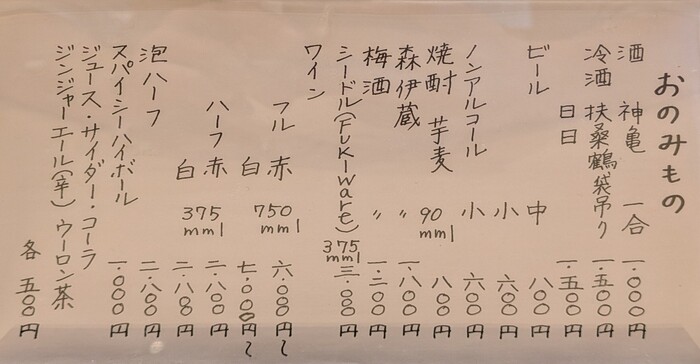 おのみもの
酒 神亀 一合 一.〇〇〇円
冷酒 扶桑鶴袋吊り 一.五〇〇円
日日 一.五〇〇円
ビール 中 八〇〇円
小 六〇〇円
ノンアルコール 小 六〇〇円
焼酎 芋麦 90mml 八〇〇円
森伊蔵 〃 一.八〇〇円
梅酒 〃 一.二〇〇円
シードル(FUKIWARE) 375mml 三.〇〇〇円
ワイン
フル 赤 750mml 六.〇〇〇円〜
白 七.〇〇〇円〜
ハーフ 赤 375mml 二.八〇〇円
白 二.八〇〇円
泡ハーフ 二.八〇〇円
スパイシーハイボール 一.〇〇〇円
ジュース・サイダー・コーラ
ジンジャーエール(辛) ウーロン茶
各 五〇〇円